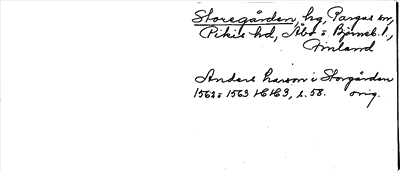 Storegården, hg, Pargas sn,
Pikis hd, Åbo o Björneb. l,
Finland
Anders Larson i Storgården
1562 o 1563 HH3, s. 58. orig.